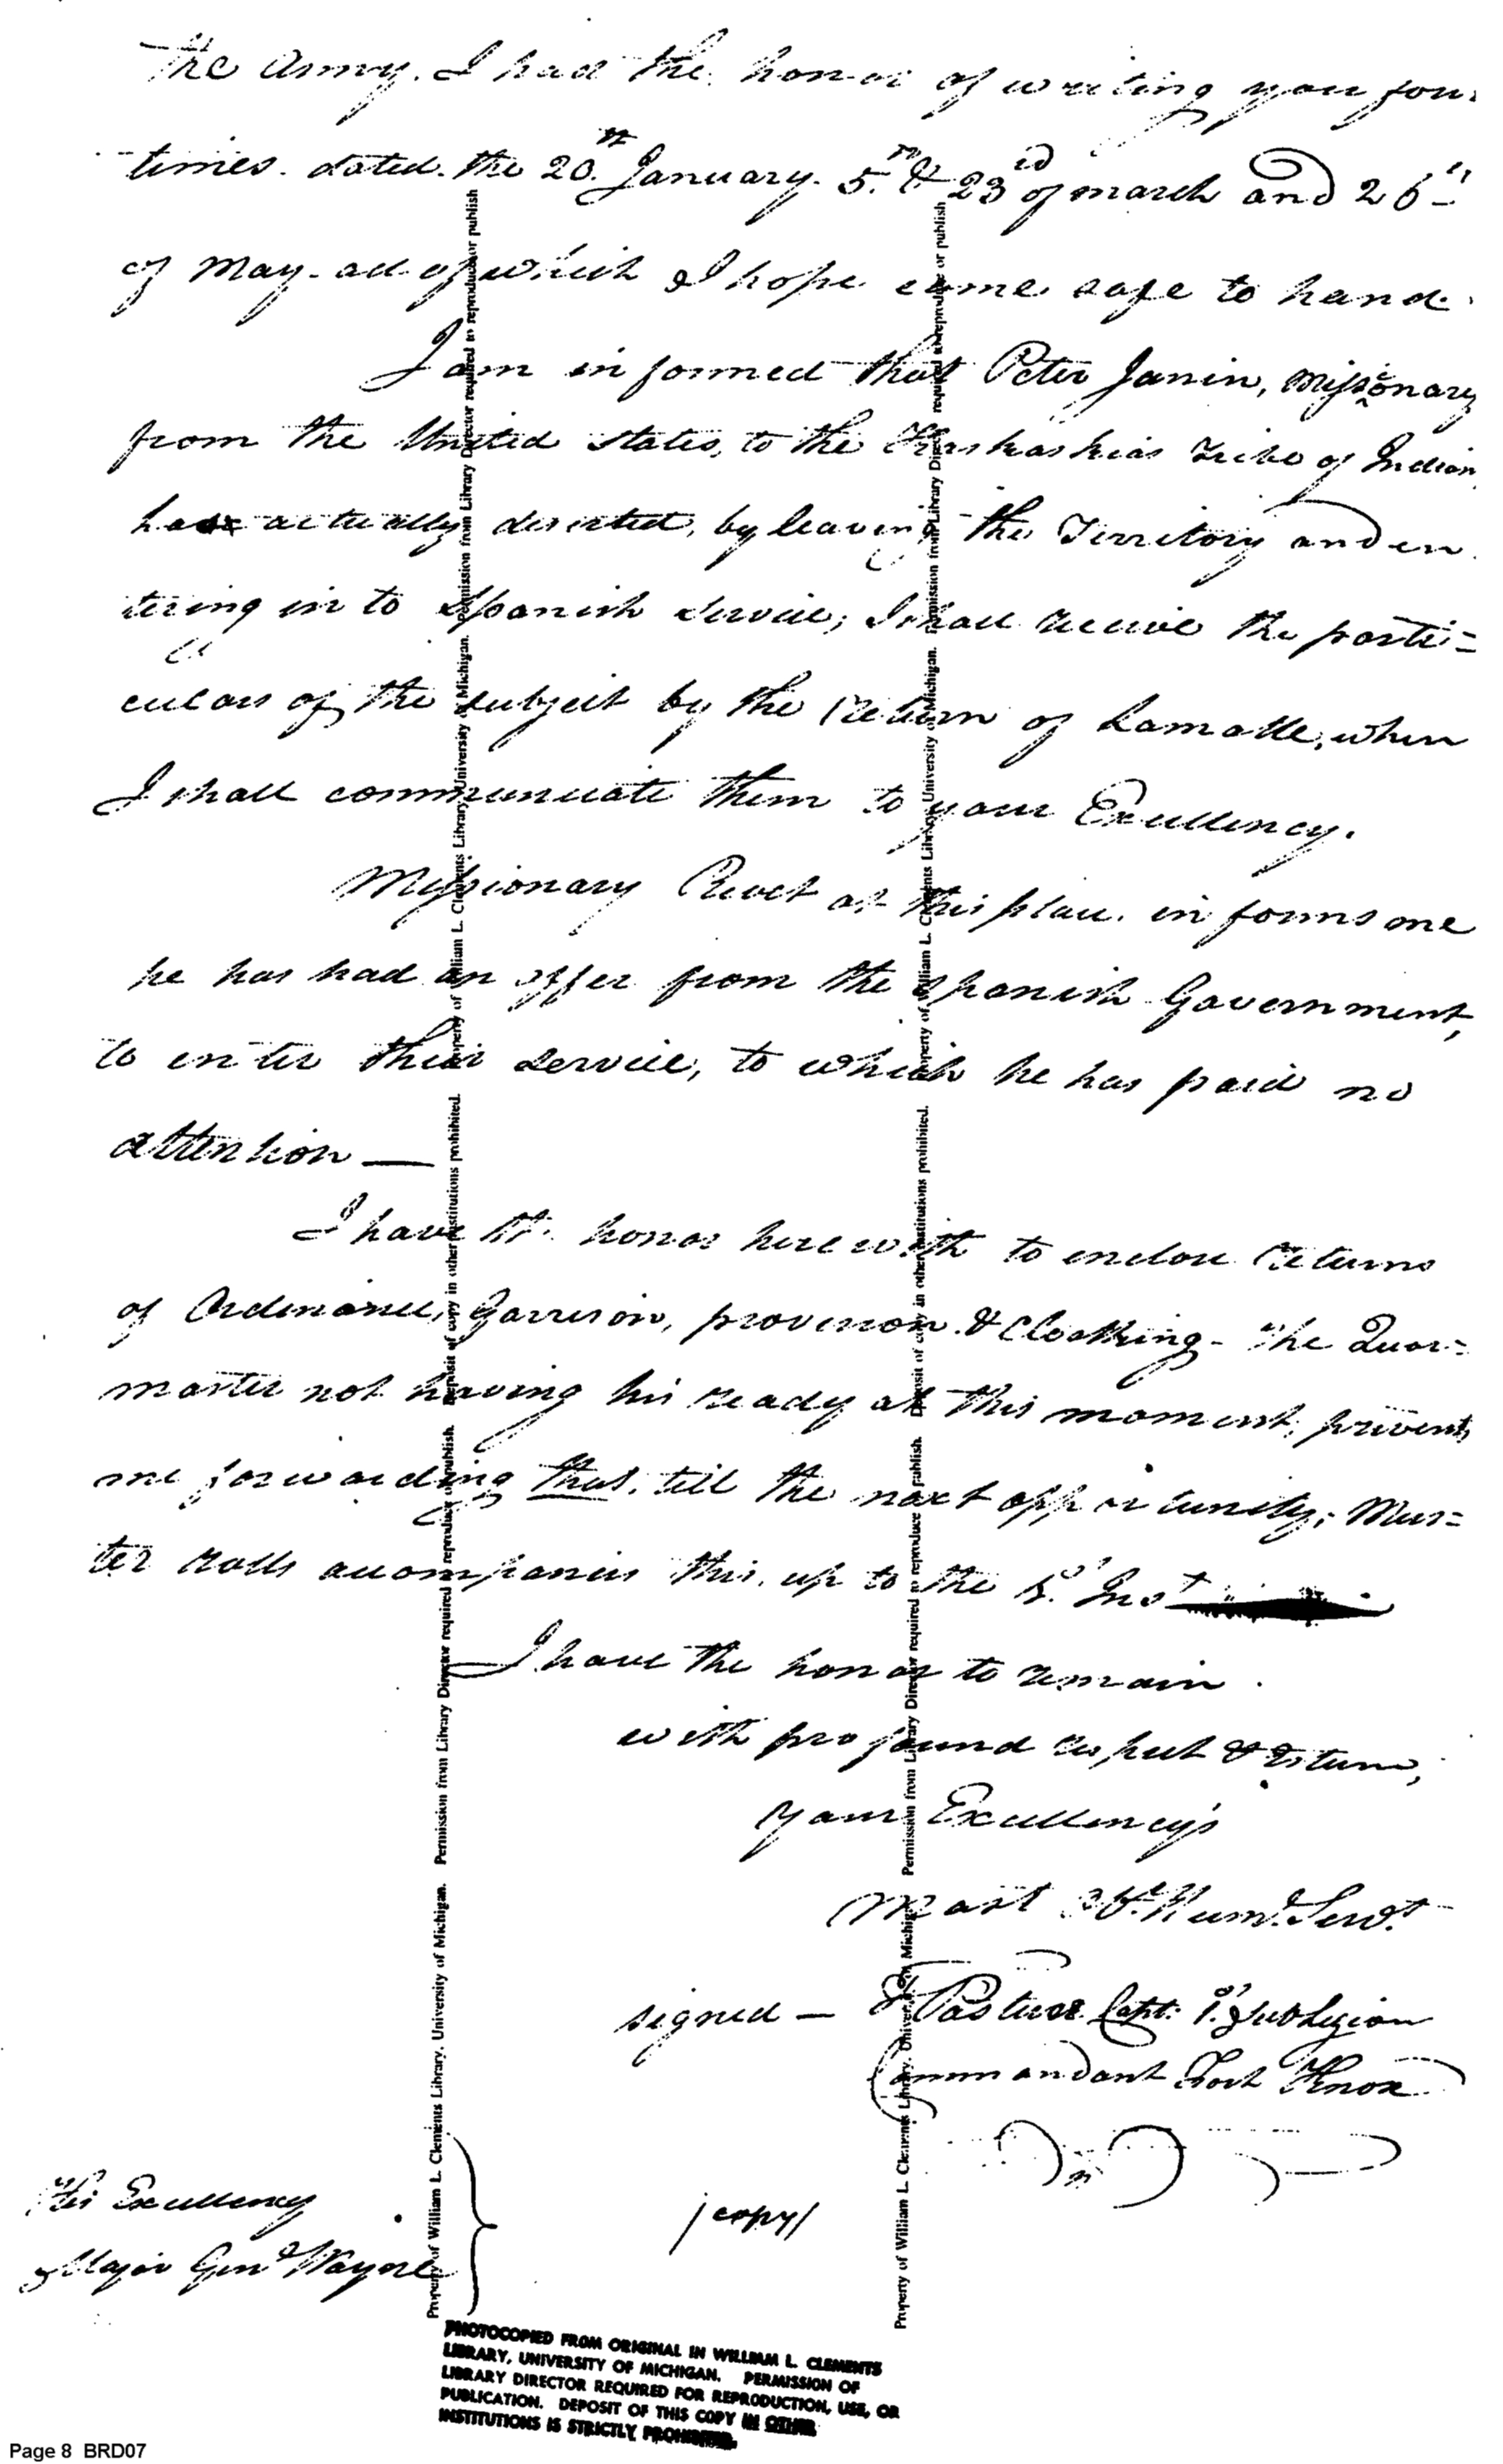 the Army. I had the honor of writing you four
times. dated. the 20.th January. 5.th & 23rd of march and 26th
of May. all of which I hope came safe to hand.
I am informed that Peter Janin, Missionary
from the United States, to the Kaskaskias Tribe of Indian
has actually deserted, by leaving the Territory and en
tering in to Spanish Service; I shall receive the parti=
culars of the subject by the return of Lamotte, when
I shall communicate them to your Excellency.
Missionary Rivet at this place. informs me
he has had an offer from the Spanish Government,
to enter their service, to which he has paid no
attention —
I have the honor herewith to enclose returns
of Ordinance, Garrison, provision & Cloathing - the Quar=
master not having his ready at this moment, prevents
me forwarding that, till the next opportunity; Mus=
ter rolls accompanies this, up to the 1st Inst
I have the honor to remain.
with profound respect & Esteem,
your Excellency's
Most Obt. Humd. Servt.
signed — T Pasteur Capt: 1st Sub Legion
Commandant Fort Knox
His Excellency
Major Genl Wayne
/copy/
Property of William L. Clements Library, University of Michigan. Permission from Library Director required to reproduce or publish. Deposit of copy in other institutions prohibited.
Property of William L. Clements Library, University of Michigan. Permission from Library Director required to reproduce or publish
Property of William L. Clements Library, University of Michigan. Permission from Library Director required to reproduce or publish. Deposit of copy in other institutions prohibited.
Property of William L. Clements Library, University of Michigan. Permission from Library Director required to reproduce or publish
PHOTOCOPIED FROM ORIGINAL IN WILLIAM L. CLEMENTS
LIBRARY, UNIVERSITY OF MICHIGAN. PERMISSION OF
LIBRARY DIRECTOR REQUIRED FOR REPRODUCTION, USE, OR
PUBLICATION. DEPOSIT OF THIS COPY IN OTHER
INSTITUTIONS IS STRICTLY PROHIBITED.
Page 8 BRD07